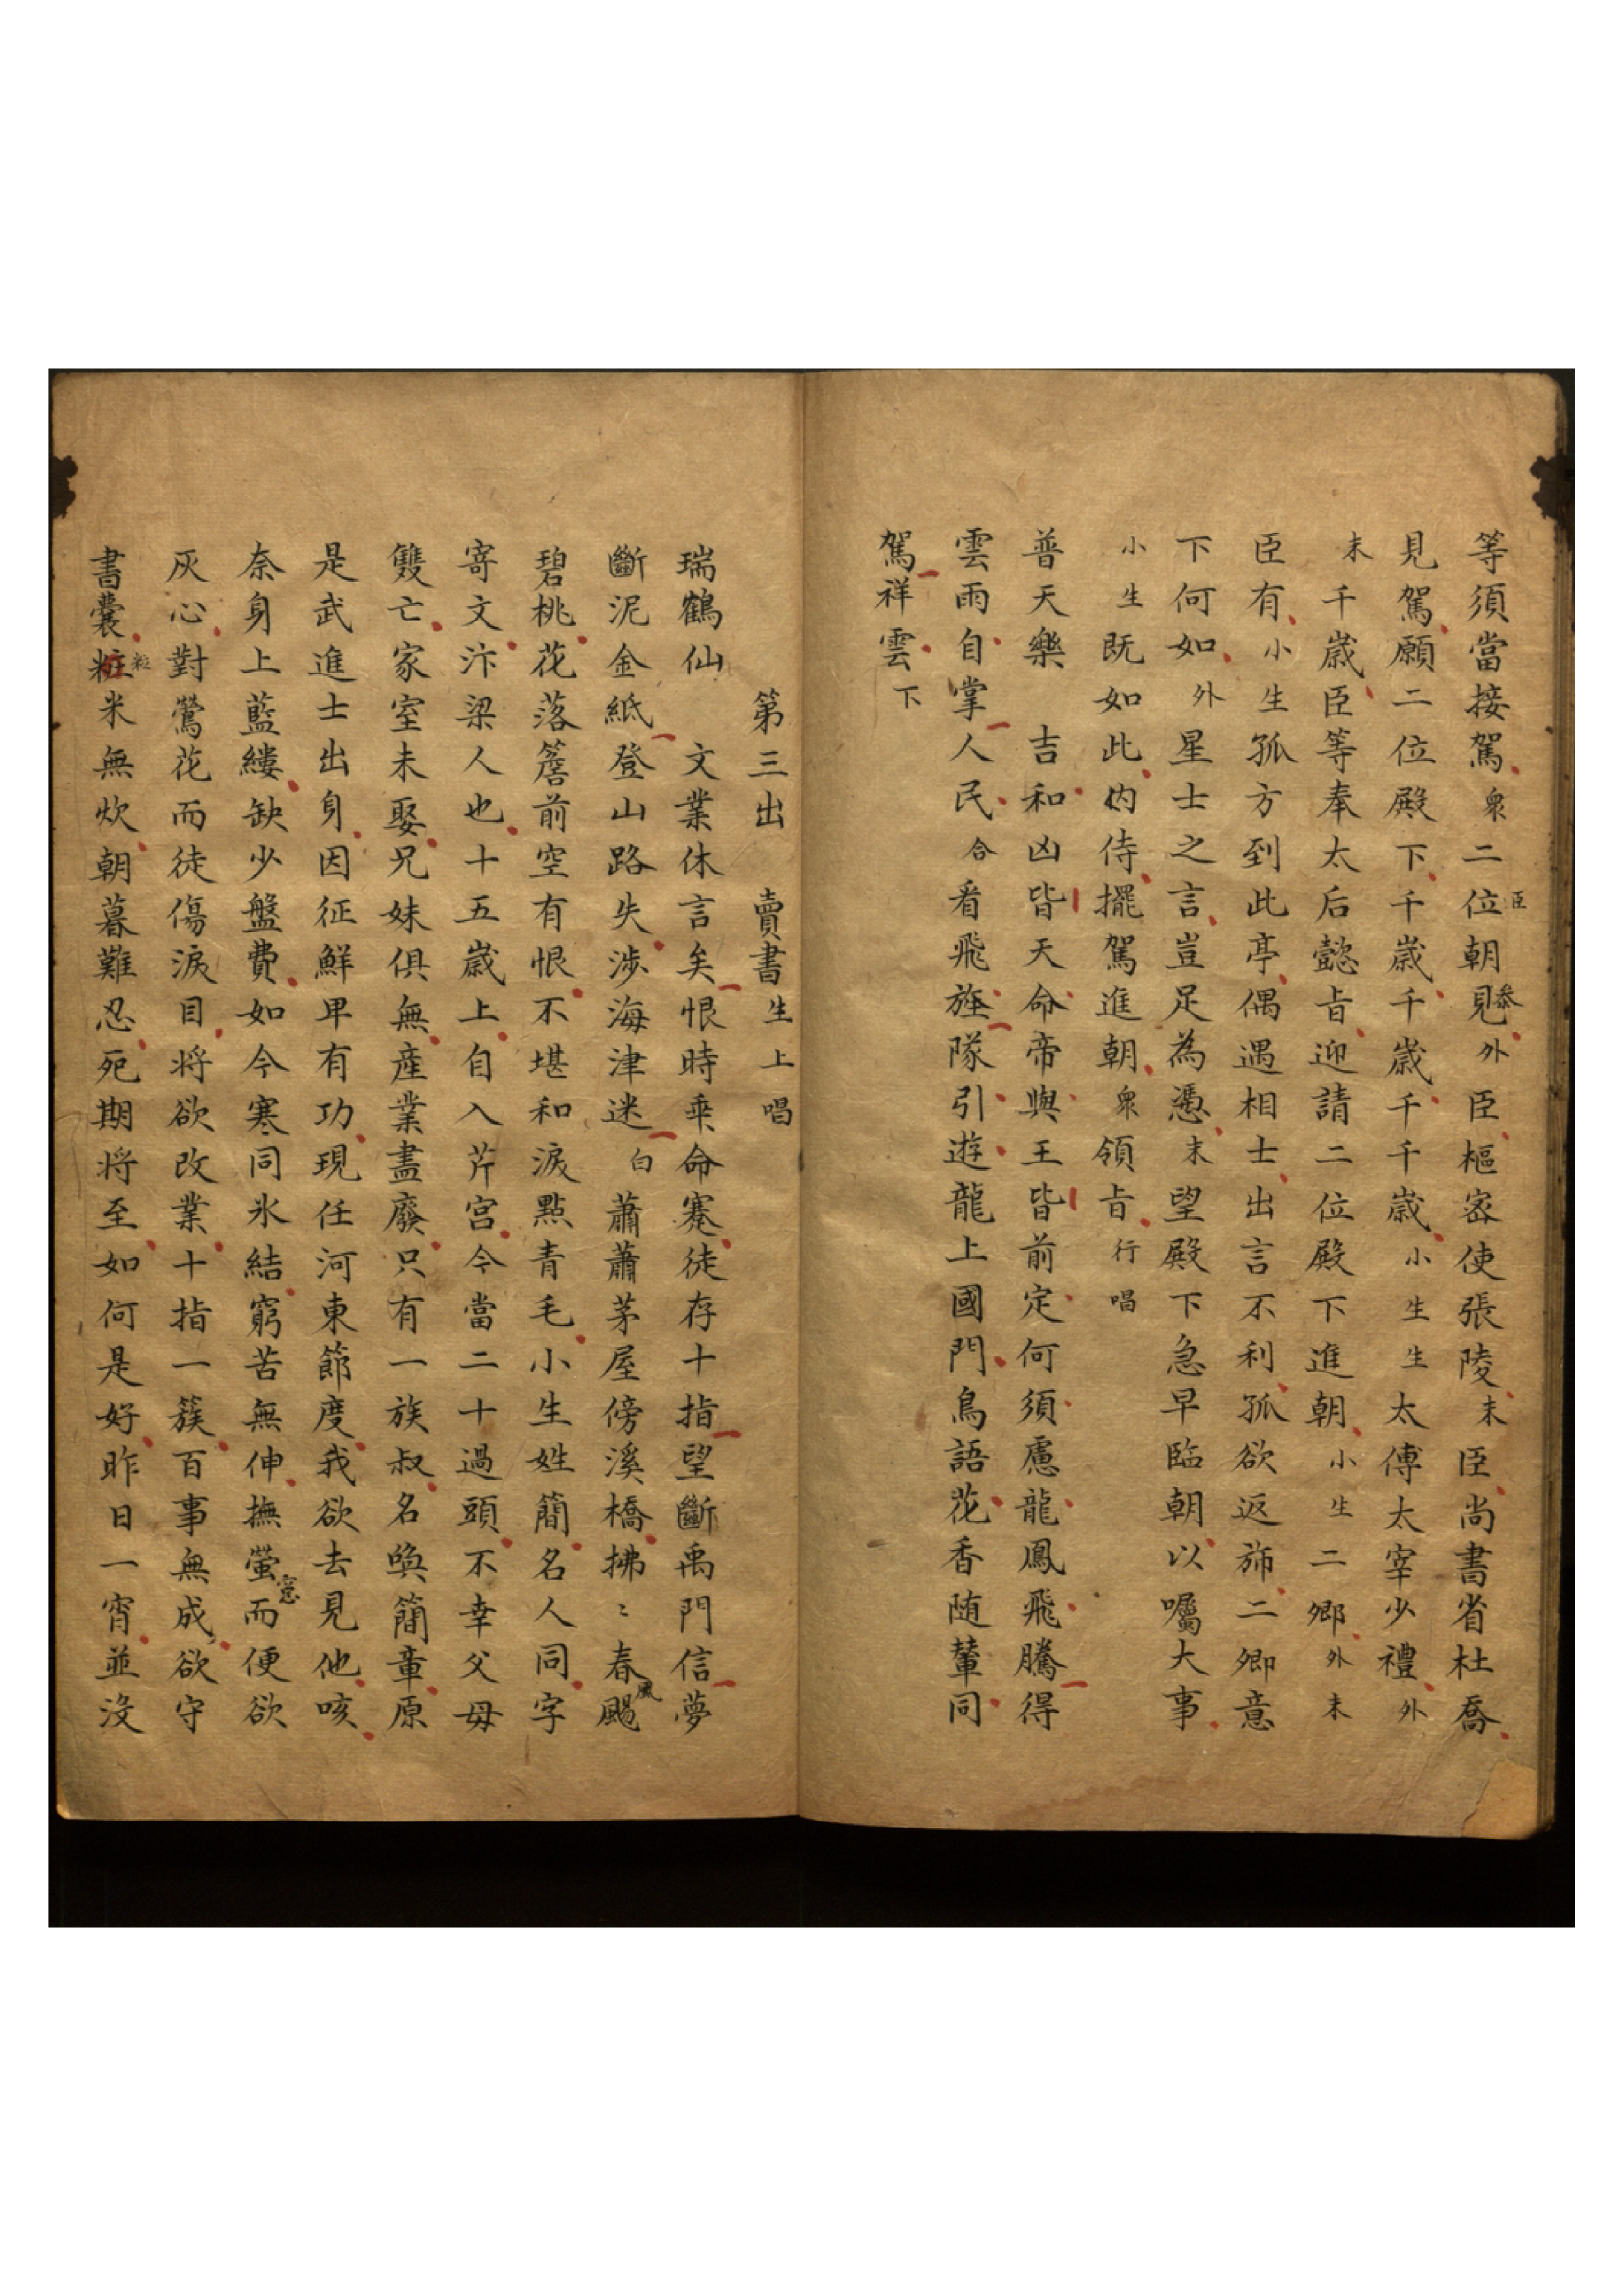 等須當接駕衆二位臣朝見叅外臣樞宻使張陵末臣尚書省杜喬
見駕願二位殿下千歳千歳千千歳小生生太傅太宰少禮外
末千歳臣等奉太后懿旨迎請二位殿下進朝小生二卿外末
臣有小生孤方到此亭偶遇相士出言不利孤欲返斾二卿意
下何如外星士之言豈足為憑末望殿下急早臨朝以囑大事
小生既如此内侍擺駕進朝衆領旨行唱
普天樂 吉和凶皆天命帝與王皆前定何須慮龍鳳飛騰得
雲雨自掌人民合看飛旌隊引遊龍上國門鳥語花香随輦同
駕祥雲下
第三出 賣書生上唱
瑞鶴仙 文業休言矣恨時乖命蹇徒存十指望斷禹門信夢
斷泥金紙登山路失涉海津迷白蕭蕭茅屋傍溪橋拂〻春颺風
碧桃花落簷前空有恨不堪和淚點青毛小生姓簡名人同字
寄文汴梁人也十五歳上自入芹宫今當二十過頭不幸父母
雙亡家室未娶兄妹俱無產業盡廢只有一族叔名喚簡章原
是武進士出身因征鮮卑有功現任河東節度我欲去見他咳
奈身上藍縷缺少盤費如今寒同氷結窮苦無伸撫螢窻而便欲
灰心對鶯花而徒傷淚目将欲改業十指一簇百事無成欲守
書囊粧粒米無炊朝暮難忍死期将至如何是好昨日一宵並没